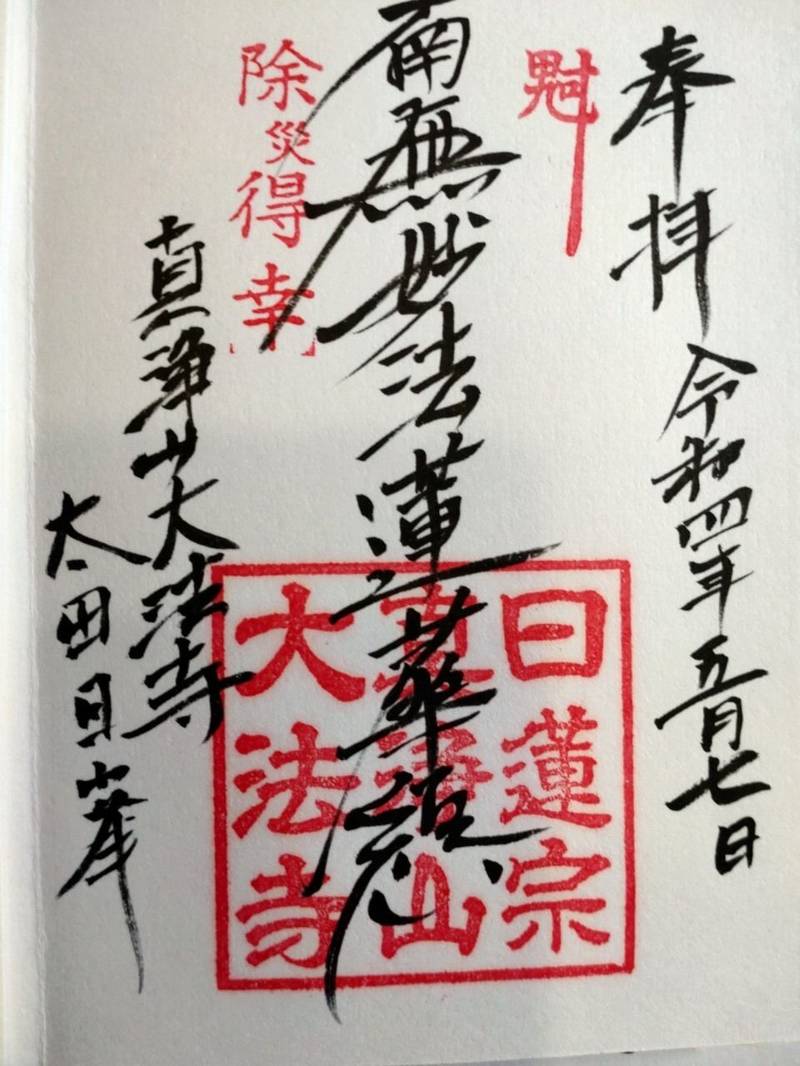 奉拝 令和四年五月七日
南無妙法蓮華経
除災得幸
真浄山大法寺
太田日峯
日蓮宗
山
大法寺